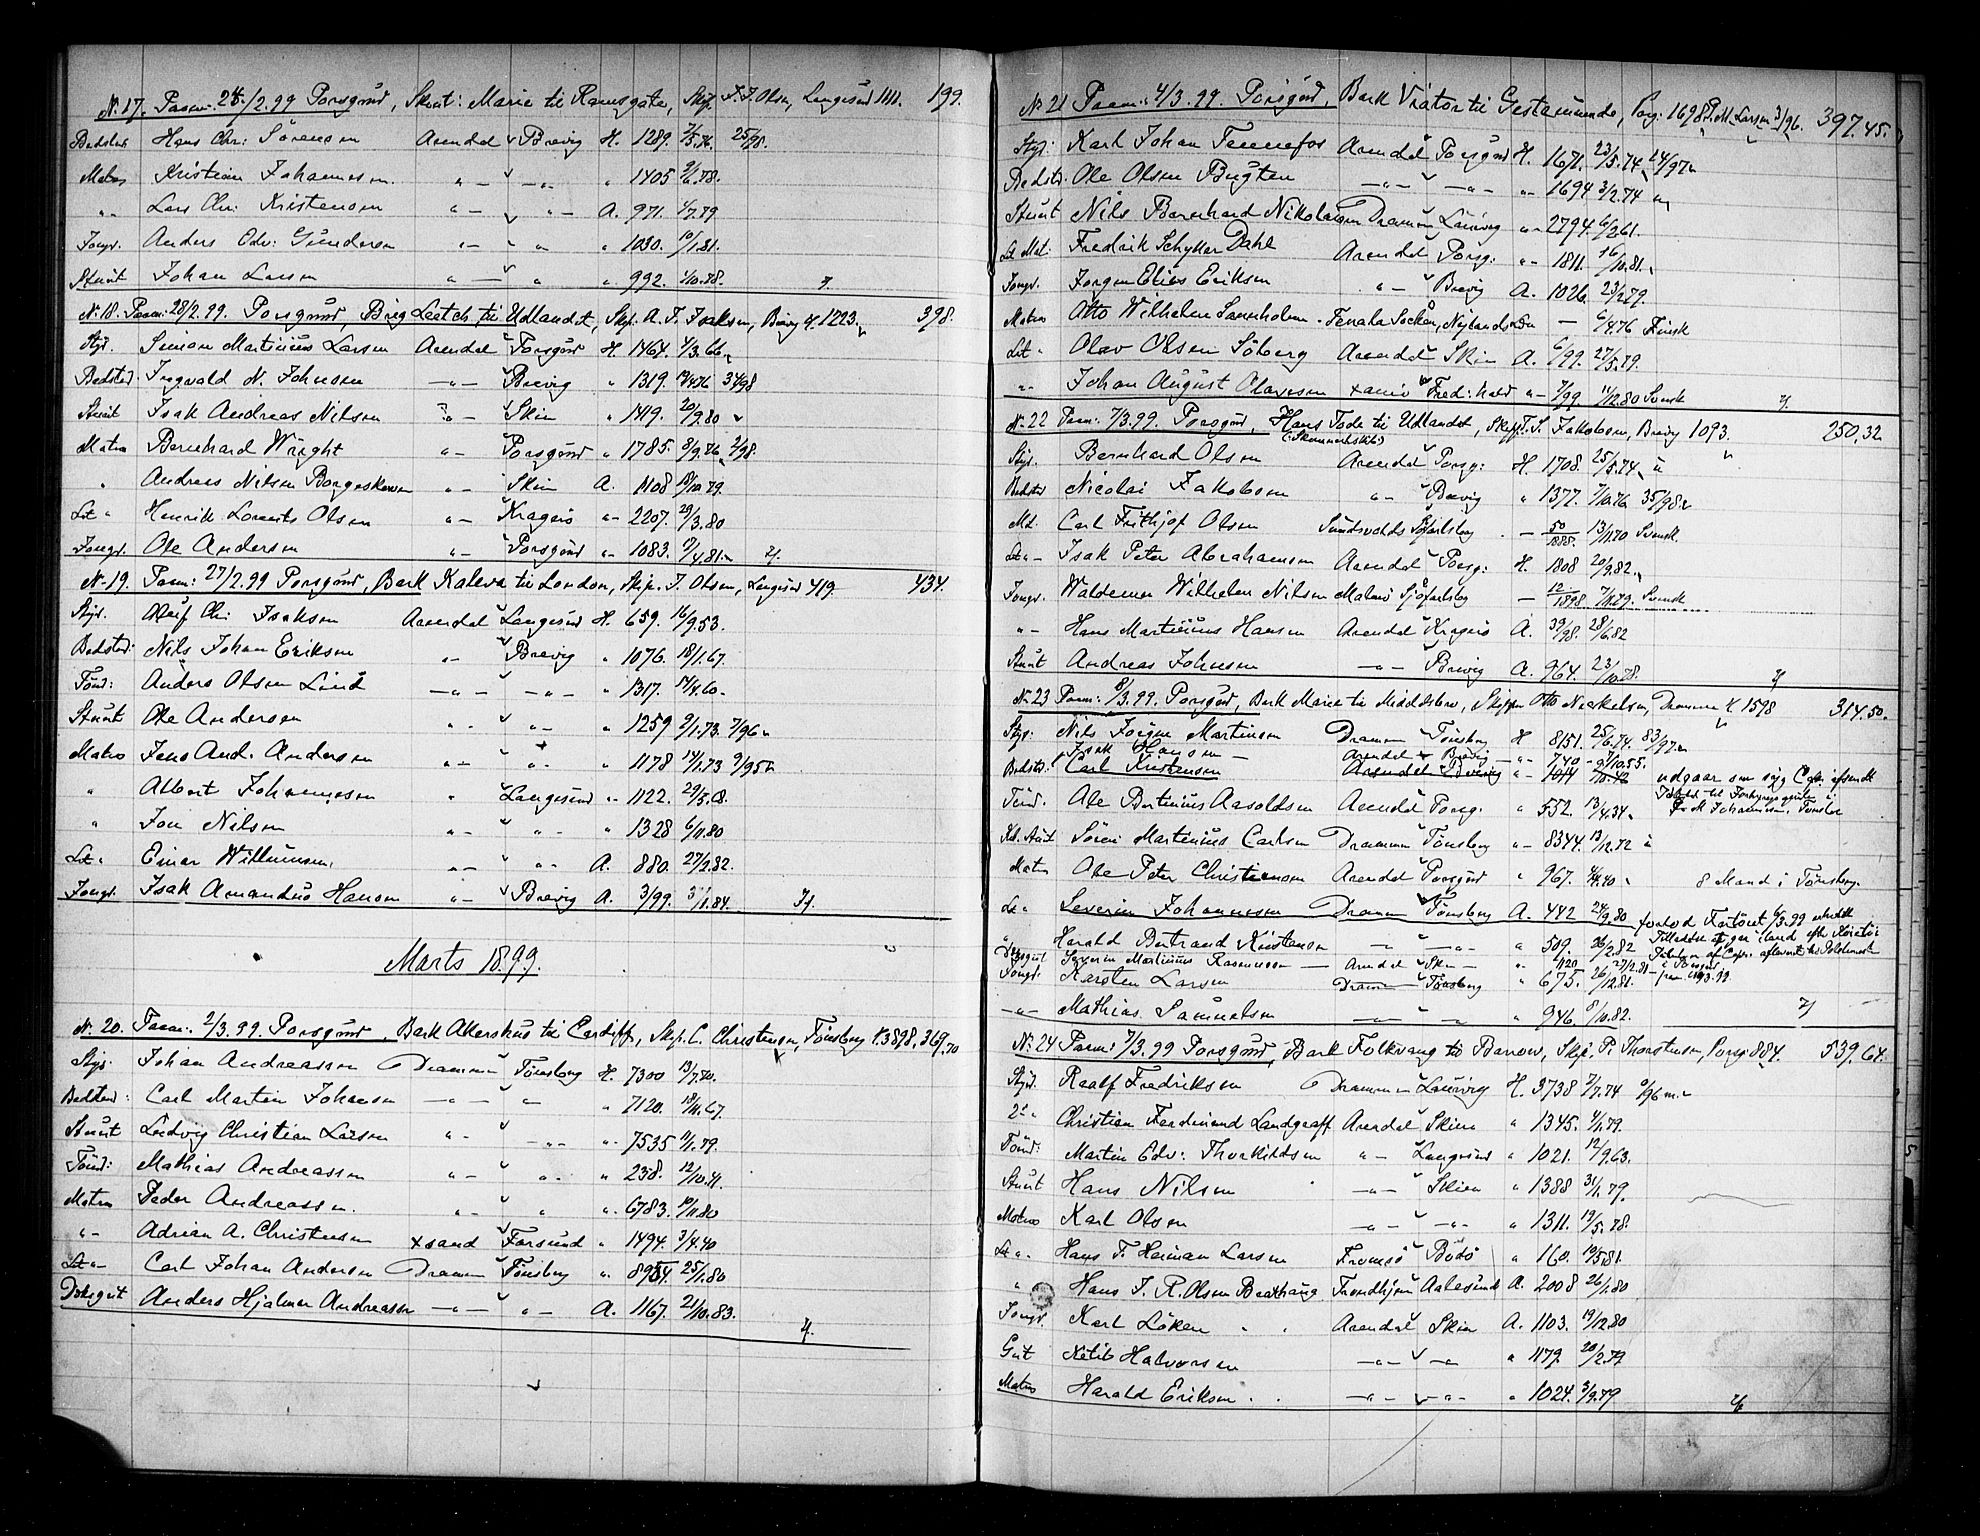 N. 17. Paam: 24/2.99 Porsgrund, Skönt: Marie til Ramsgate, Skip. T. J. Olsen, Langesund 1111. 199.
Bedstmd Hans Chr: Sörensen Arendal Brevig H. 1289. 25/98.
Matros Kristian Johannesen " — — " — " 1405
" Lars Chr: Kristensen " — " — A. 971. 4/7.79
Jungm. Anders Edv: Gundersen " — " " 1030. 10/1.81.
Stuert Johan Larsen " — " " 992. 1/10.78.
N. 18. Paam: 28/2.99. Porsgrund, Brig Leetch til Udlandet, Skp. A. T. Isaksen, Brevig H. 1223. 398.
Styr. Simon Martinius Larsen Arendal Porsgrund H. 1464. 4/3.66
Bedstmd Ingvald N. Johnsen — " — Brevig " 1319. 34/98
Stuert Isak Andreas Nilsen " — Skien " 1419. 20/9.80
Matros Bernhard Wright " — Porsgrund " 1785. 8/9.76 2/98.
" Andreas Nilsen Borgeskoven " — Skien A. 1108
Let " Henrik Lorents Olsen " — Kragerö " 2207. 29/3.80
Jungm. Ole Andersen " — Porsgrund " 1083. 9/4.81.
N. 19. Paam: 27/2.99 Porsgrund, Bark Kaleva til London, Skip. J. Olsen, Langesund 419. 434.
Styr. Chr: Isaksen Arendal Langesund H. 659. 16/9.53.
Bedstmd: Nils Johan Eriksen " — Brevig " 1076. 18/1.67.
Tömd: Anders Olsen Lind — " — — " — " 1317. 14/4.60.
Stuert Ole Andersen " — " — " 1259 9/1.73. 7/96
Matros Jens And. Andersen " — " 1178 14/1.73 9/95
" Albert Johannesen " Langesund " 1122. 29/5.
" Jon Nilsen " — " — " 1328 6/11.80
Let " Einar Willumsen. " — " A. 880. 27/2.82.
Jungm. Isak Amandus Hansen " — Brevig A. 3/99. 3/1.84.
Marts 1899.
N. 20. Paam: 2/3.99. Porsgrund, Bark Akershus til Cardiff, Skip. C. Christensen, Tönsberg K. 3898. 369,70
Styr Johan Andreassen Drammen Tönsberg H. 7300 13/7.70.
Bedstmd: Carl Martin Johansen — " — " — " 7120. 18/11.67.
Stuert Ludvig Christian Larsen " — — " — " 7535 11/1.79.
Tömd: Mathias Andreassen " — " " 238. 12/10.41.
Matros Peder Andreassen. " — " " 6783. 19/11.80
" — Adrian A. Christensen Xsand Farsund " 1494. 3/4.40
Let " Carl Johan Andersen Drammen Tönsberg " 8954. 25/1.80
Dæksgut Anders Hjalmar Andreassen — " — " — A. 1167. 21/10.83.
N. 21 Paam: 4/3.99. Porsgrund, Bark Viator til Gestemünde, Porsg: 1698. P. M. Larsen 3/96. 397.45.
Styr: Karl Johan Tannefos Arendal Porsgrund H. 1671. 23/5.74 24/97
Bedstmd. Ole Olsen Bugten — " — — " — " 1694 3/2.74
Stuert Nils Bernhard Nikolaisen Drammen Laurvig " 2794. 6/2.61.
Let Mat. Fredrik Schytter Dahl Arendal Porsg: " 1811. 16/10.81.
Jungm. Jörgen Elias Eriksen " — Brevig A. 1026. 23/2.79.
Matros Otto Wilhelm Sannholm Tenala Socken, Nylands — 6/4.76 Finsk
Let " Olav Olsen Söberg Arendal Skien A. 6/99. 27/5.79.
" Johan August Olavesen Xania Fred:hald " — 7/99. 11/12.80 Svensk
N. 22 Paam: 7/3.99. Porsgrund, Hans Tode til Udlandet, Skipp. T. S. Jakobsen, Brevig 1093. 250,32
(Skonnertskib)
Styr. Bernhard Olsen Arendal Porsg: H. 1708. 25/5.74
Bedstmd Nicolai Jakobsen " — Brevig " 1377. 7/10.76 35/98
Mat. Carl Frithjof Olsen Sundsvalds Sjöfartsbog — 50/1885. 13/11.70 Svensk.
Let " Isak Peter Abrahamsen Arendal Porsg: H. 1808 20/9.82.
Jungm. Waldemar Wilhelm Nilsen Malmö Sjöfartsbog — 12/1898. 7/11.79. Svensk
" — Hans Martinius Hansen Arendal Kragerö A. 39/98. 28/6.82
Stuert Andreas Johnsen — " — Brevig A. 964. 23/10.78.
N. 23 Paam: 8/3.99. Porsgrund, Bark Marie til Middelsbro, Skipper Otto Mickelsen, Drammen K. 1598 314.50.
Styr: Nils Jörgen Martinsen Drammen Tönsberg H 8151. 25/6.74. 83/97
Isak Hansen — Arendal Brevig — " — 740 — 9/10.55.
Bedstmd. Carl Kristensen Arendal Brevig " — 1044 7/10.42 udgaar som syg
Tömd. Ole Bertinius Aasoldsen Arendal Porsg. " 552. 13/4.34. Johannesen, Tönsberg
Kok Stuert Sören Martinius Carlsen Drammen Tönsberg " 8344. 13/12.72
Matros Ole Peter Christensen Arendal Porsgrund " 967. 4/4.40 8 Mand i Tönsberg.
Let " Severin Johannesen Drammen Tönsberg A. 442 24/9.80 forlod Fartöiet 6/3.99
" Harald Bertrand Kristensen — " — — " — " 509. 26/2.82
Dæksgut Severin Martinius Rasmussen — Arendal Skien — " 1120 27/2.81
Jungm. Karsten Larsen Drammen Tönsberg " 675. 26/12.81.
— " — Mathias Samuelsen — " — " — " 946. 8/10.82.
N. 24 Paam: 7/3.99 Porsgrund, Bark Folkvang til Barrow, Skp. P. Thorstensen, Porsg: 884. 539.64.
Styr. Roalf Fredriksen Drammen Laurvig H. 3738 7/7.74
2d " Christian Ferdinand Landgraff Arendal Skien " 1345. 4/1.79.
Tömd: Martin Edv: Thorkildsen " — Langesund " 1021. 12/9.63.
Stuert Hans Nilsen — " — Skien " 1388 31/1.79.
Matros Karl Olsen — " — — " — " 1311. 19/5.78.
Let " Hans T. Heiman Larsen Tromsö Bodö " 160. 19/5.81.
" Hans J. R. Olsen Brathaug Trondhjem Aalesund A. 2008 26/1.80
Jungm. Karl Löken Arendal Skien A. 1103. 19/12.80
Gut Ketil Halvorsen — " — — " — " 1179. 20/2.79
Matros Harald Eriksen — " — — " — " 1024. 3/9.79